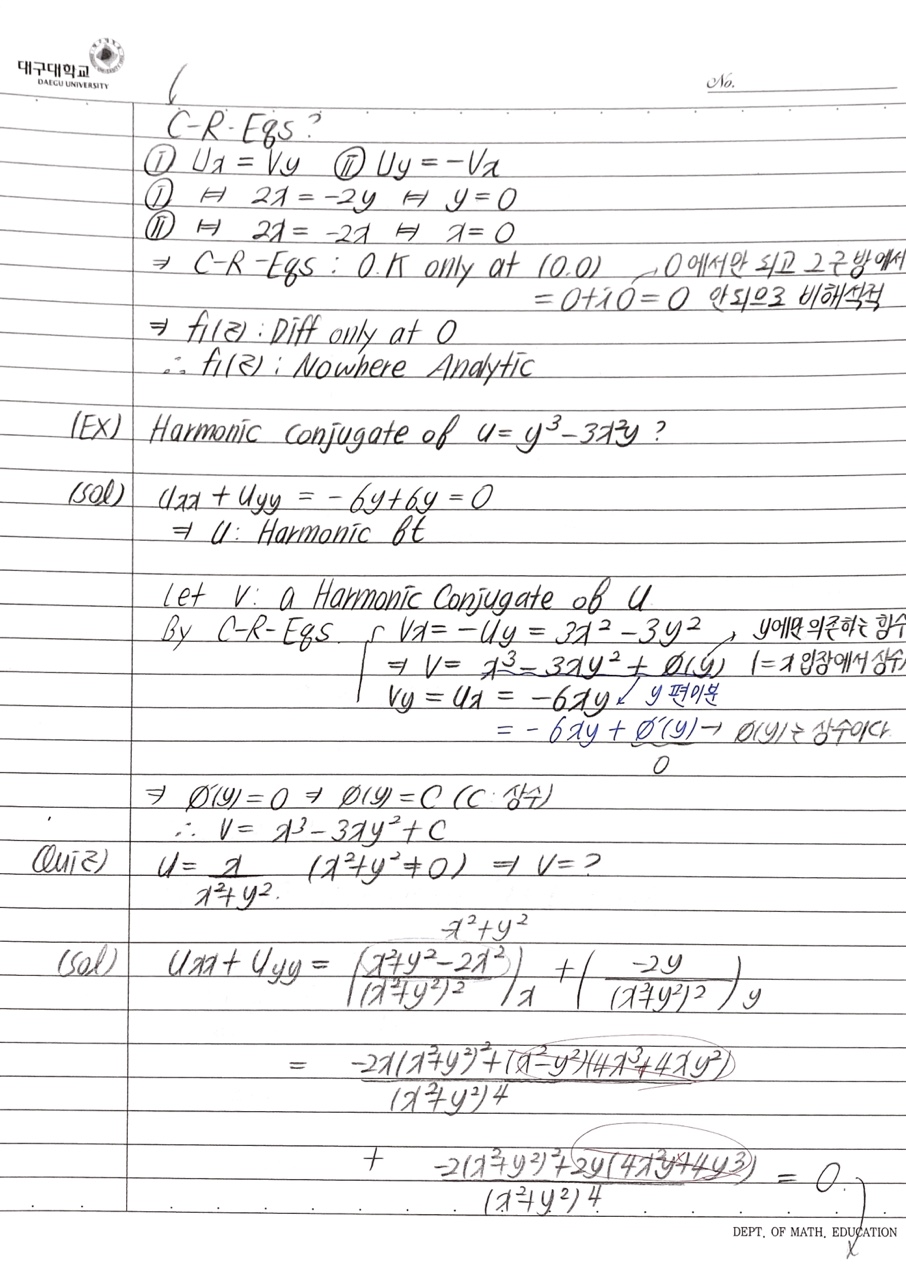 대구대학교
DAEGU UNIVERSITY
No.
C-R-Eqs?
Ⓘ Ux = Vy Ⓘⓘ Uy = -Vx
Ⓘ ⇔ 2x = -2y ⇔ y = 0
Ⓘⓘ ⇔ 2x = -2x ⇔ x = 0
⇒ C-R-Eqs : O.K only at (0.0) 0에서만 되고 그 근방에서
= 0+i0 = 0 안되으로 비해석적
⇒ f1(z) : Diff only at 0
∴ f1(z) : Nowhere Analytic
(EX) Harmonic conjugate of u = y³-3x²y ?
(sol) Uxx + Uyy = -6y+6y = 0
⇒ U: Harmonic ft
Let V: a Harmonic Conjugate of U
By C-R-Eqs. Vx = -Uy = 3x²-3y² y에만 의존하는 함수
⇒ V = x³-3xy² + Ø(y) (=x 입장에서 상수)
Vy = Ux = -6xy y 편미분
= -6xy + Ø'(y) → Ø(y)는 상수이다
0
⇒ Ø'(y) = 0 ⇒ Ø(y) = C (C: 상수)
∴ V = x³-3xy²+C
Quiz) U = x/(x²+y²) (x²+y²≠0) ⇒ V = ?
-x²+y²
(sol) Uxx + Uyy = ((x²+y²-2x²)/(x²+y²)²)x + (-2y/(x²+y²)²)y
= (-2x(x²+y²)²+(x²-y²)(4x³+4xy²))/(x²+y²)4
+ (-2(x²+y²)²+2y(4x²y+4y3))/(x²+y²)4 = 0.
x
DEPT. OF MATH. EDUCATION